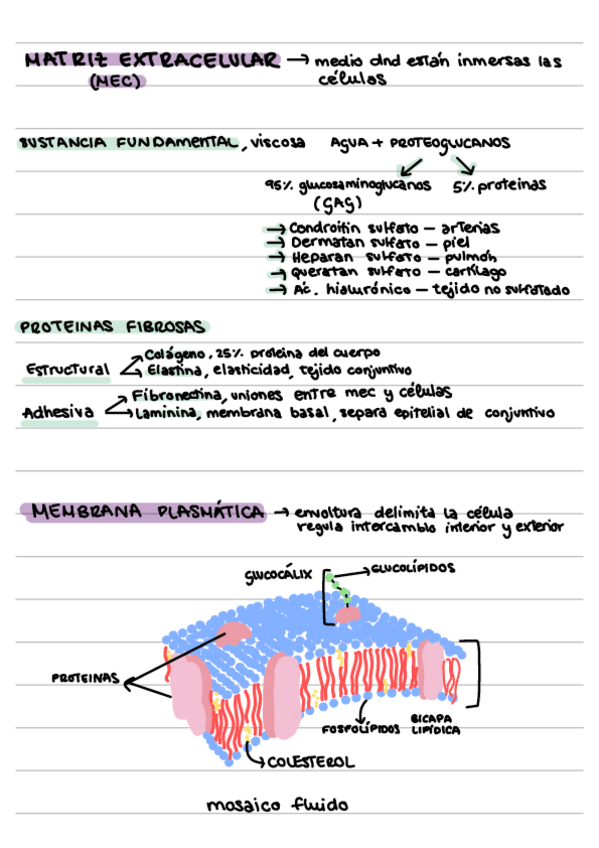 MATRIZ EXTRACELULAR → medio dnd están inmersas las
(MEC) células
SUSTANCIA FUNDAMENTAL, viscosa AGUA + PROTEOGLUCANOS
95% glucosaminoglucanos 5% proteinas
(GAG)
→ Condroitin sulfato – arterias
→ Dermatan sulfato – piel
→ Heparan sulfato – pulmón
→ Queratan sulfato – cartílago
→ Ác. hialurónico – tejido no sulfatado
PROTEINAS FIBROSAS
Colágeno, 25% proteina del cuerpo
Estructural
Elastina, elasticidad, tejido conjuntivo
Fibronectina, uniones entre mec y células
Adhesiva
Laminina, membrana basal, separa epitelial de conjuntivo
MEMBRANA PLASMÁTICA → envoltura delimita la célula
regula intercambio interior y exterior
GLUCOCÁLIX GLUCOLÍPIDOS
PROTEINAS
FOSFOLÍPIDOS BICAPA
LIPÍDICA
COLESTEROL
mosaico fluido